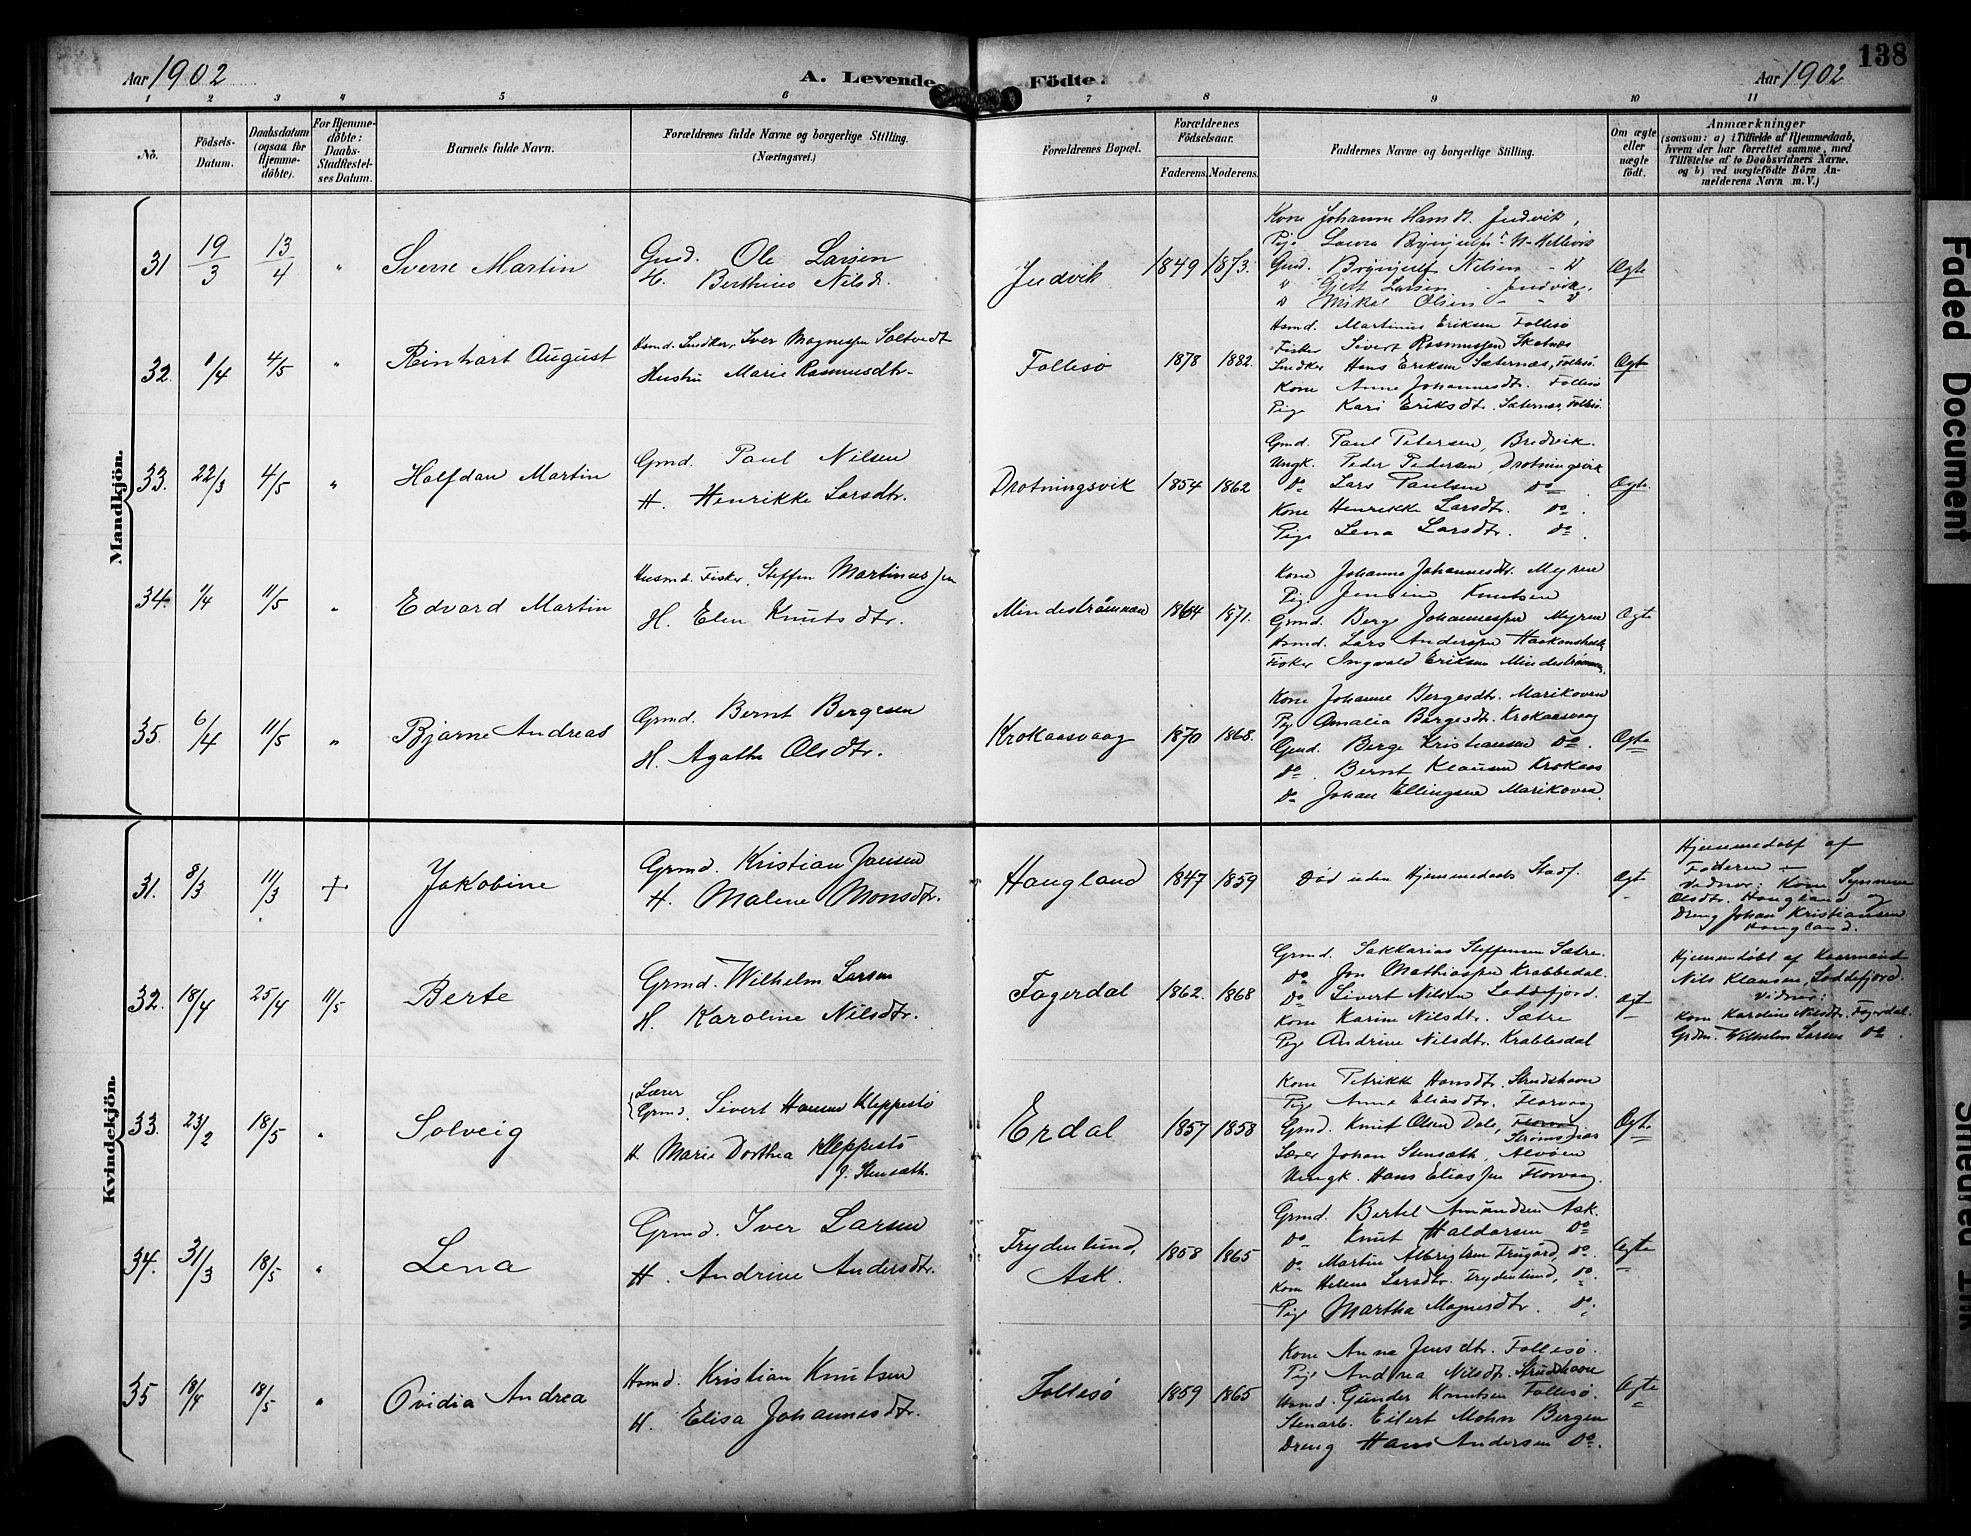 138
Aar 1902
A. Levende Födte.
Aar 1902
1 2 3 4 5 6 7 8 9 10 11
No.
Födsels-Datum.
Daabsdatum (ogsaa for Hjemme-döbte).
For Hjemme-döbte: Daabs-Stadfæstel-ses Datum.
Barnets fulde Navn.
Forældrenes fulde Navne og borgerlige Stilling.
(Næringsvei.)
Forældrenes Bopæl.
Forældrenes Födselsaar.
Faderens. Moderens.
Faddernes Navne og borgerlige Stilling.
Om ægte eller uægte födt.
Anmærkninger
(saasom: a) i Tilfælde af Hjemmedaab,
hvem der har forrettet samme, med
Tilföielse af to Daabsvidners Navne,
og b) ved uægtefödte Börn An-
melderens Navn m. V.)
Mandkjön.
31 19/3 13/4 " Sverre Martin
Gmd. Ole Larsen
H. Berthine Nilsdr.
Indvik 1849 1873.
Kone Johanne Hansd. Indvik,
Pige Laura
Gmd. Brynjulf Nilsen - "
" Gjert Larsen - Indvik.
" Mikal Olsen - - "
Ægte
32. 1/4 4/5 " Reinhart August
Husmd. Snedker, Iver Magnessen Soltvedt
Hustru Marie Rasmusdtr.
Follesö 1878 1882.
Husmd. Martinus Eriksen Follesö
Fisker Sivert Rasmussen Skotnæs
Snedker Hans Eriksen Sæternæs, Follesö.
Kone Anna Johannesdtr. Follesö
Pige Kari Eriksdtr. Sæternæs, Follesö.
Ægte
33. 22/3 4/5 " Halfdan Martin
Grmd. Paul Nilsen
H. Henrikke Larsdtr.
Drotningsvik 1854 1862
Grmd. Paul Petersen, Bredvik.
Ungk. Peder Pedersen, Drotningsvik
Do Lars Paulsen Do
Kone Henrikke Larsdtr. Do.
Pige Lena Larsdtr. Do.
Ægte.
34. 1/4 11/5 " Edvard Martin
Husmd. Fisker, Steffen Martinussen
H. Elen Knutsdtr.
Mindeströmmen 1864 1871.
Kone Johanne Johannesdtr. Myrene
Pige Jensine Knutsen
Grmd. Berge Johannessen Myrene
Husmd. Lars Anderssen Haakonshella
Fisker Ingvald Eriksen Mindeströmmen.
Ægte
35. 6/4 11/5 " Bjarne Andreas
Grmd. Bernt Bergesen
H. Agathe Olsdtr.
Krokaasvaag 1870 1868.
Kone Johanne Bergesdtr. Marikoven
Pige Amalia Bergesdtr. Krokaasvaag
Grmd. Berge Kristiansen Do.
Do. Bernt Klausen Krokaas
Do Johan Ellingsen Marikoven.
Ægte
Kvindekjön.
31. 8/3 11/3 + Jakobine
Grmd. Kristian Jansen
H. Malene Monsdtr.
Haugland 1847 1859
Död uden Hjemmedaabs Stadf.
Ægte
Hjemmedöbt af
Faderen -
Vidner: Kone Synneve
Olsdtr. Haugland og
Dreng Johan Kristiansen
Haugland.
32. 18/4 25/4 11/5 Berte
Grmd. Wilhelm Larsen
H. Karoline Nilsdtr.
Fagerdal 1862. 1868
Grmd. Sakkarias Steffensen Sætre.
Do Jon Mathiassen Krabbedal.
Do Sivert Nilsen Loddefjord.
Kone Karine Nilsdtr. Sætre
Pige Andrine Nilsdtr. Krabbedal
Ægte
Hjemmedöbt af Kaarmand
Nils Klausen, Loddefjord.
Vidner:
Kone Karoline Nilsdtr. Fagerdal.
Grdm. Wilhelm Larsen Do.
33. 23/2 18/5 " Solveig
Lærer
Grmd. Sivert Hansen Kleppestö
H. Marie Dorthea Kleppestö
f. Stensæth.
Erdal 1857 1858
Kone Petrikke Hansdtr. Strudshavn
Pige Anna Eliasdtr. Florvaag
Grmd. Knut Olsen Dale, Strömsnæs
Lærer Johan Stensæth, Alvöen
Ungk. Hans Eliassen Florvaag.
Ægte
34. 31/3 18/5 " Lena
Grmd. Iver Larsen
H. Andrine Andersdtr.
Frydenlund, Ask. 1858 1865
Grmd. Bertel Amundsen Ask.
Do Knut Haldorsen Do
Do Martin Albrigtsen Trugård, Do.
Kone Helene Larsdtr. Frydenlund, Do.
Pige Martha Magnesdtr. Do.
Ægte
35 18/4 18/5 " Ovidia Andrea
Husmd. Kristian Knutsen
H. Elisa Johannesdtr.
Follesö 1859 1865
Kone Anna Jensdtr. Follesö.
Pige Andrea Nilsdtr. Strudshavn
Husmd. Gunder Knutsen Follesö.
Stenarb. Eilert Mohn Bergen
Dreng Hans Andersen Do.
Ægte
Faded Document
Smeared Ink